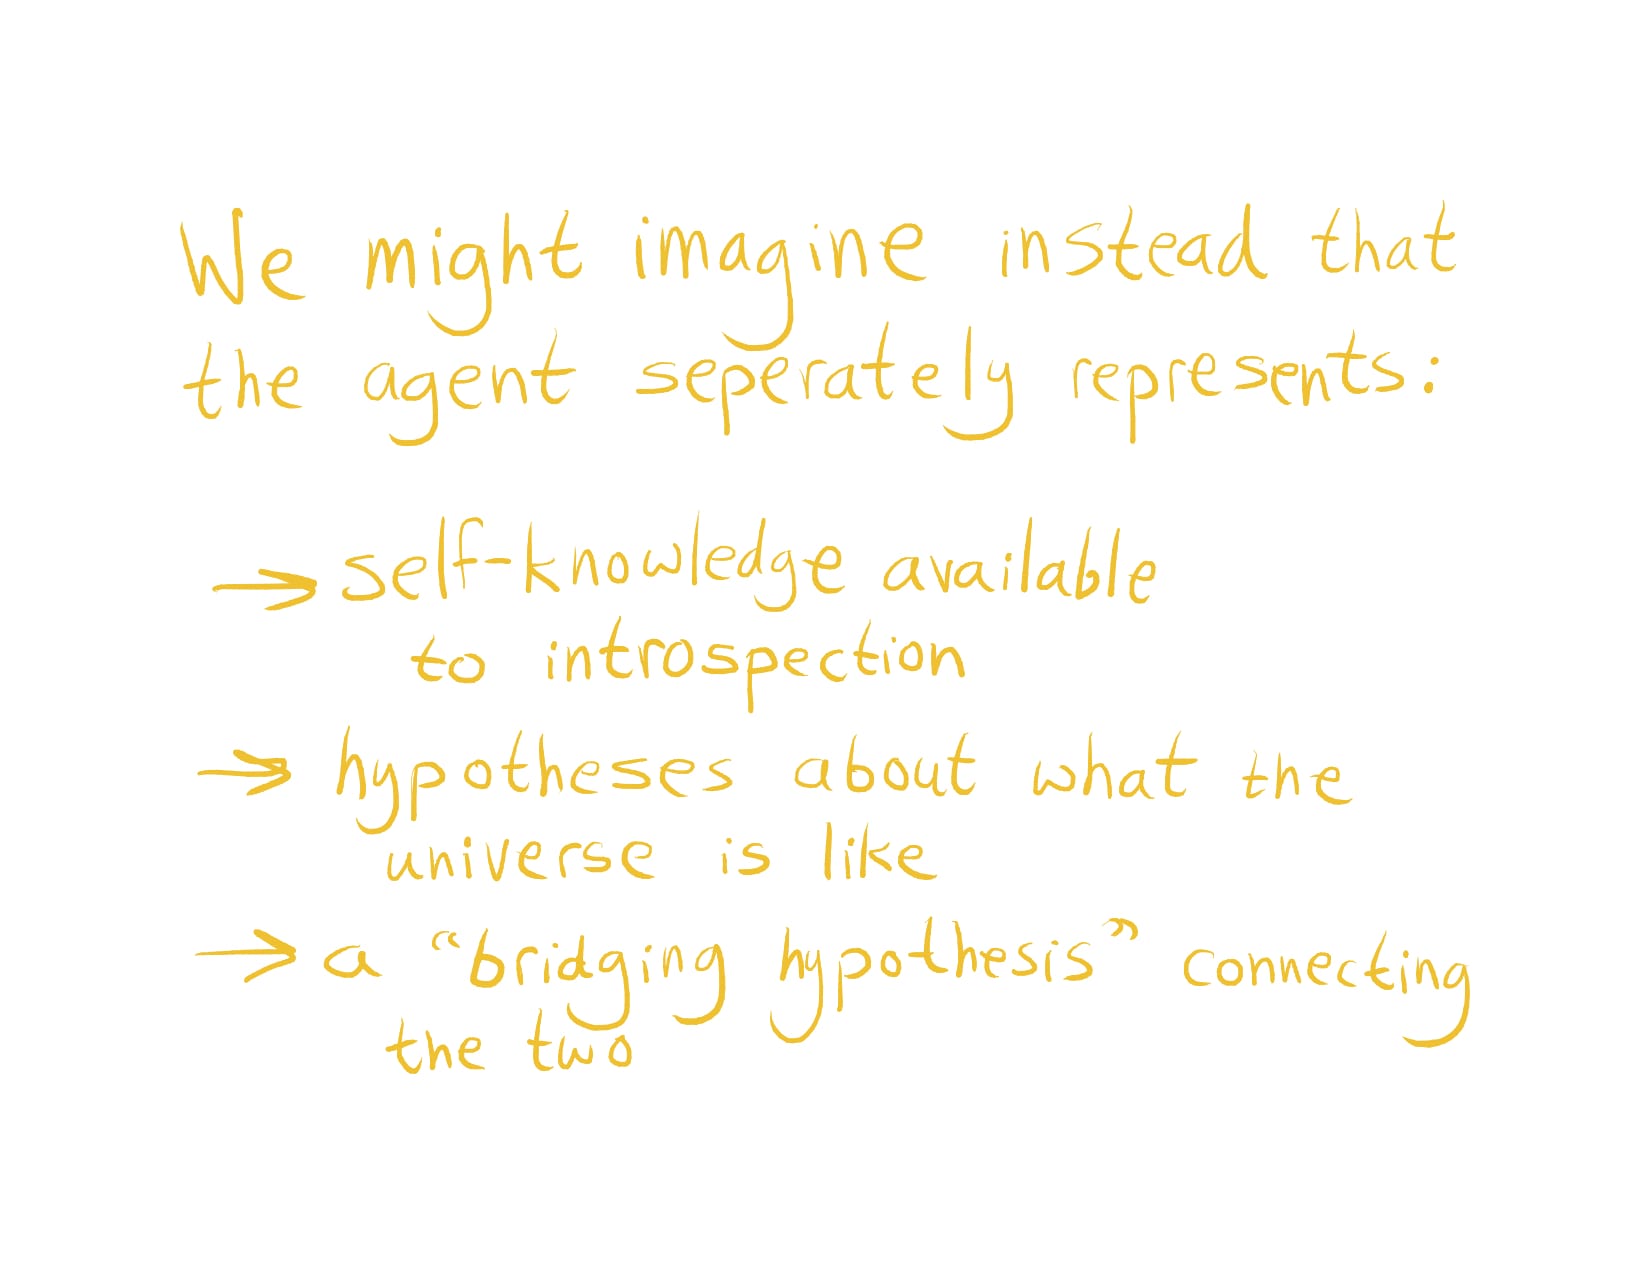 We might imagine instead that
the agent seperately represents:
→ self-knowledge available
to introspection
→ hypotheses about what the
universe is like
→ a “bridging hypothesis” connecting
the two